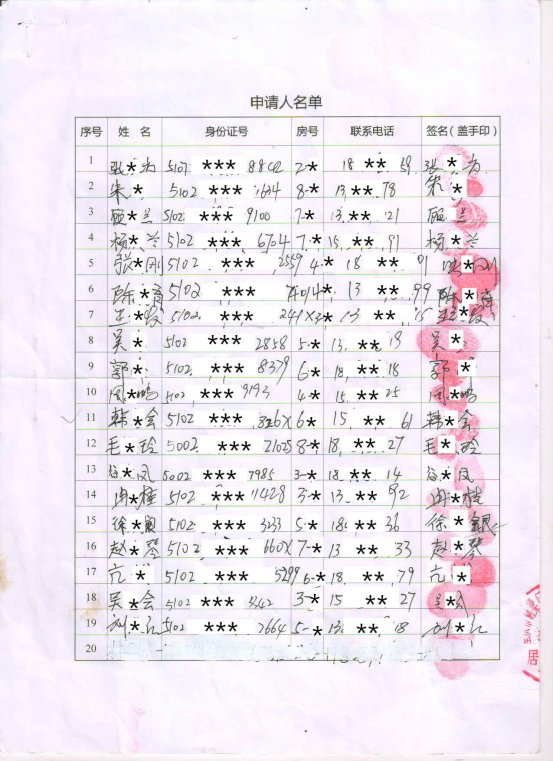 申请人名单
序号 姓 名 身份证号 房号 联系电话 签名（盖手印）
1 张*为 5102 *** 8842 2-* 18 ** 59 张*为
2 朱* 5102 *** 1634 8-* 13 ** 78 朱*
3 顾*兰 5102 *** 9100 7-* 13 ** 21 顾*兰
4 杨*兰 5102 *** 6704 7-* 15 ** 91 杨*兰
5 张*刚 5102 *** 2559 4-* 18 ** 91 *刚
6 陈*育 5102 *** * 13 ** 99 陈*育
7 王* 5102 *** * 13 ** 王*
8 吴* 5102 *** 2858 5-* 13 ** 19 吴*
9 郭* 5102 *** 8379 6-* 18 ** 18 郭*
10 周*鸣 5102 *** 9193 4-* 15 ** 25 周*鸣
11 韩*会 5102 *** 326X 6-* 15 ** 61 韩*会
12 毛*玲 5002 *** 21025 8-* 18 ** 27 毛*玲
13 谷*凤 5002 *** 7985 3-* 18 ** 14 谷*凤
14 周*桂 5102 *** 11428 3-* 13 ** 92 周*桂
15 徐* 5102 *** 3233 5-* 18 ** 36 徐*银
16 赵*琴 5102 *** 660X 7-* 13 ** 33 赵*琴
17 亢* 5102 *** 5299 6-* 18 ** 79 亢*
18 吴*会 5102 *** 3342 3-* 15 ** 27 吴*
19 刘*仁 5102 *** 7664 5-* 13 ** 18 刘*仁
20
居